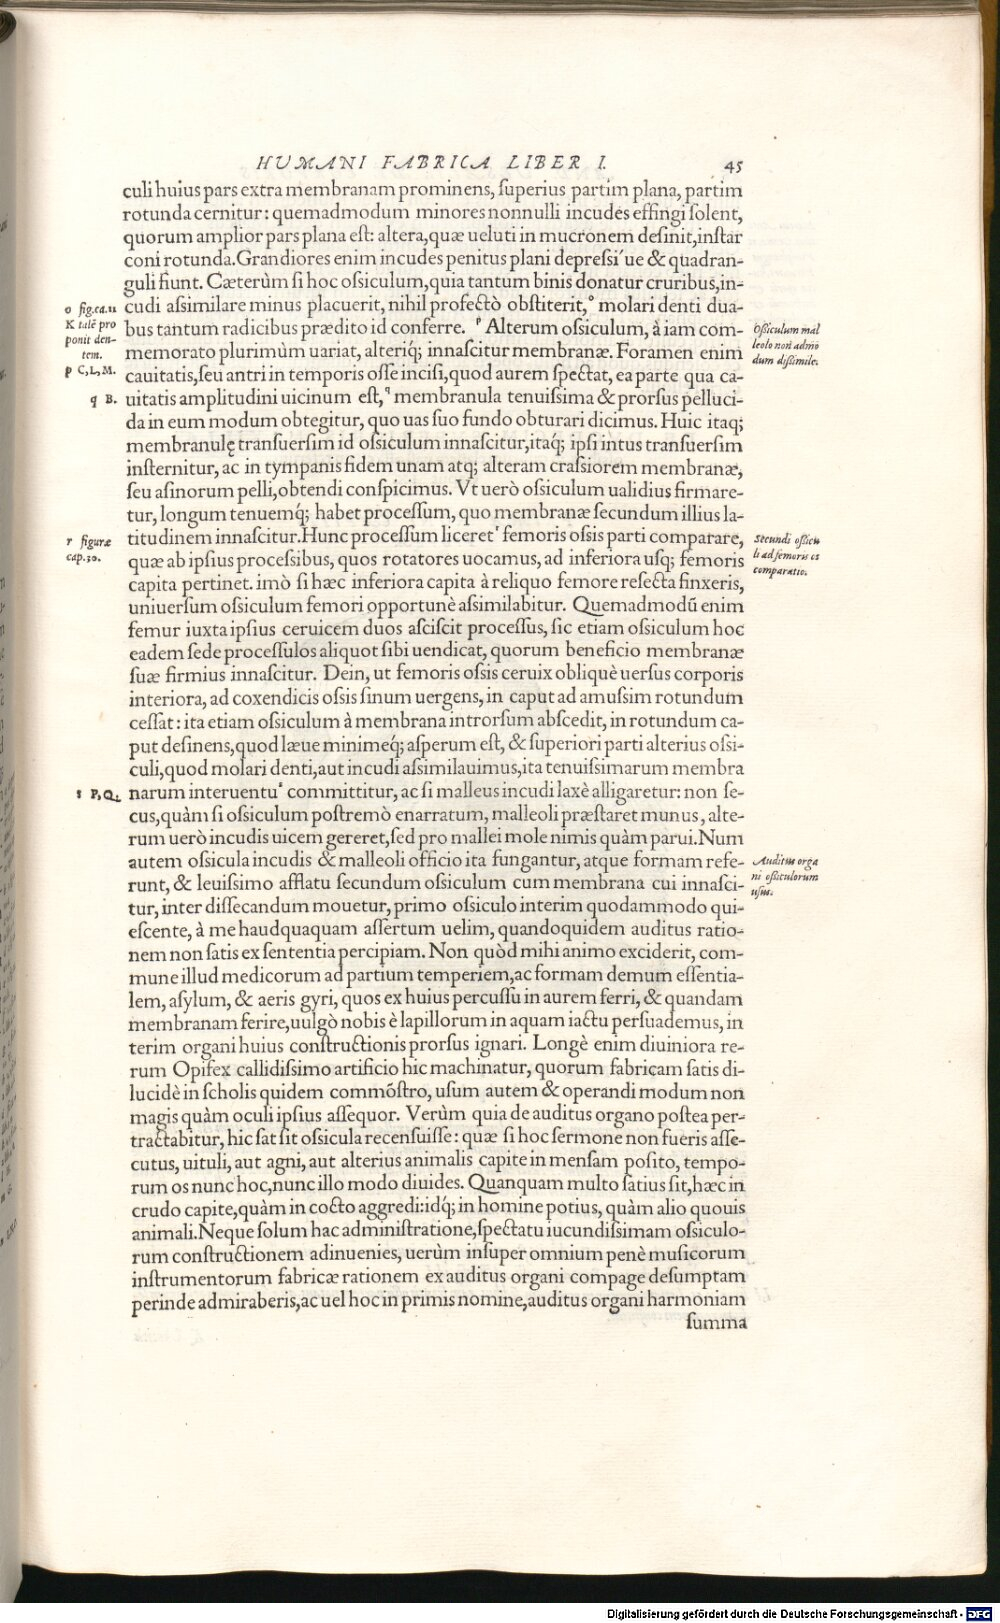 HVMANI FABRICA LIBER I. 45
culi huius pars extra membranam prominens, ſuperius partim plana, partim
rotunda cernitur: quemadmodum minores nonnulli incudes effingi ſolent,
quorum amplior pars plana eſt: altera, quæ ueluti in mucronem deſinit, inſtar
coni rotunda. Grandiores enim incudes penitus plani depreſsi´ue & quadran-
guli fiunt. Cæterùm ſi hoc oſsiculum, quia tantum binis donatur cruribus, in-
o fig.ca.11
K talẽ pro
ponit den-
tem.
p C, L, M.
cudi aſsimilare minus placuerit, nihil profectò obſtiterit, º molari denti dua-
bus tantum radicibus prædito id conferre. ᵖ Alterum oſsiculum, à iam com-
Oſsiculum mal
leolo non admo
dum diſsimile.
memorato plurimùm uariat, alteriq́; innaſcitur membranæ. Foramen enim
cauitatis, ſeu antri in temporis oſſe inciſi, quod aurem ſpectat, ea parte qua ca-
q B.
uitatis amplitudini uicinum eſt, ᑫ membranula tenuiſsima & prorſus pelluci-
da in eum modum obtegitur, quo uas ſuo fundo obturari dicimus. Huic itaq;
membranulę tranſuerſim id oſsiculum innaſcitur, itaq́; ipſi intus tranſuerſim
inſternitur, ac in tympanis fidem unam atq; alteram craſsiorem membranæ,
ſeu aſinorum pelli, obtendi conſpicimus. Vt uerò oſsiculum ualidius firmare-
tur, longum tenuemq́; habet proceſſum, quo membranæ ſecundum illius la-
r figuræ
cap.30.
titudinem innaſcitur. Hunc proceſſum liceret ʳ femoris oſsis parti comparare,
Secundi oſsicu
li ad femoris os
comparatio.
quæ ab ipſius proceſsibus, quos rotatores uocamus, ad inferiora uſq; femoris
capita pertinet. imò ſi hæc inferiora capita à reliquo femore reſecta finxeris,
uniuerſum oſsiculum femori opportunè aſsimilabitur. Quemadmodũ enim
femur iuxta ipſius ceruicem duos aſciſcit proceſſus, ſic etiam oſsiculum hoc
eadem ſede proceſſulos aliquot ſibi uendicat, quorum beneficio membranæ
ſuæ firmius innaſcitur. Dein, ut femoris oſsis ceruix obliquè uerſus corporis
interiora, ad coxendicis oſsis ſinum uergens, in caput ad amuſsim rotundum
ceſſat: ita etiam oſsiculum à membrana introrſum abſcedit, in rotundum ca-
put deſinens, quod læue minimeq́; aſperum eſt, & ſuperiori parti alterius oſsi-
culi, quod molari denti, aut incudi aſsimilauimus, ita tenuiſsimarum membra
s P, Q.
narum interuentu ˢ committitur, ac ſi malleus incudi laxè alligaretur: non ſe-
cus, quàm ſi oſsiculum poſtremò enarratum, malleoli præſtaret munus, alte-
rum uerò incudis uicem gereret, ſed pro mallei mole nimis quàm parui. Num
autem oſsicula incudis & malleoli officio ita fungantur, atque formam refe-
Auditus orga
ni oſsiculorum
uſus.
runt, & leuiſsimo afflatu ſecundum oſsiculum cum membrana cui innaſci-
tur, inter diſſecandum mouetur, primo oſsiculo interim quodammodo qui-
eſcente, à me haudquaquam aſſertum uelim, quandoquidem auditus ratio-
nem non ſatis ex ſententia percipiam. Non quòd mihi animo exciderit, com-
mune illud medicorum ad partium temperiem, ac formam demum eſſentia-
lem, aſylum, & aeris gyri, quos ex huius percuſſu in aurem ferri, & quandam
membranam ferire, uulgò nobis è lapillorum in aquam iactu perſuademus, in
terim organi huius conſtructionis prorſus ignari. Longè enim diuiniora re-
rum Opifex callidiſsimo artificio hic machinatur, quorum fabricam ſatis di-
lucidè in ſcholis quidem commõſtro, uſum autem & operandi modum non
magis quàm oculi ipſius aſſequor. Verùm quia de auditus organo poſtea per-
tractabitur, hic ſat ſit oſsicula recenſuiſſe: quæ ſi hoc ſermone non fueris aſſe-
cutus, uituli, aut agni, aut alterius animalis capite in menſam poſito, tempo-
rum os nunc hoc, nunc illo modo diuides. Quanquam multo ſatius ſit, hæc in
crudo capite, quàm in cocto aggredi: idq́; in homine potius, quàm alio quouis
animali. Neque ſolum hac adminiſtratione, ſpectatu iucundiſsimam oſsiculo-
rum conſtructionem adinuenies, uerùm inſuper omnium penè muſicorum
inſtrumentorum fabricæ rationem ex auditus organi compage deſumptam
perinde admiraberis, ac uel hoc in primis nomine, auditus organi harmoniam
ſumma
Digitalisierung gefördert durch die Deutsche Forschungsgemeinschaft - DFG